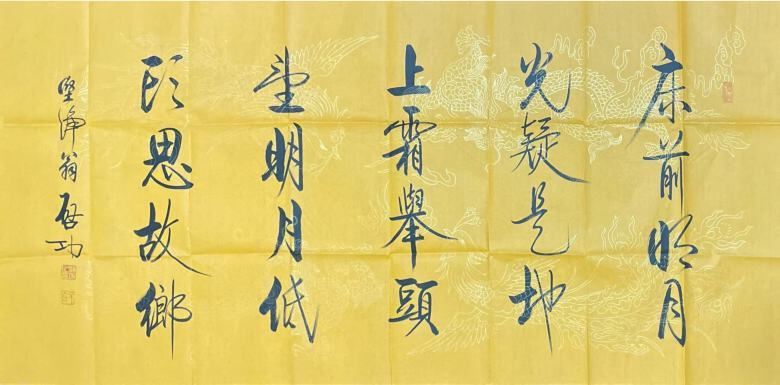 床前明月
光疑是地
上霜舉頭
望明月低
頭思故鄉
堅淨翁启功